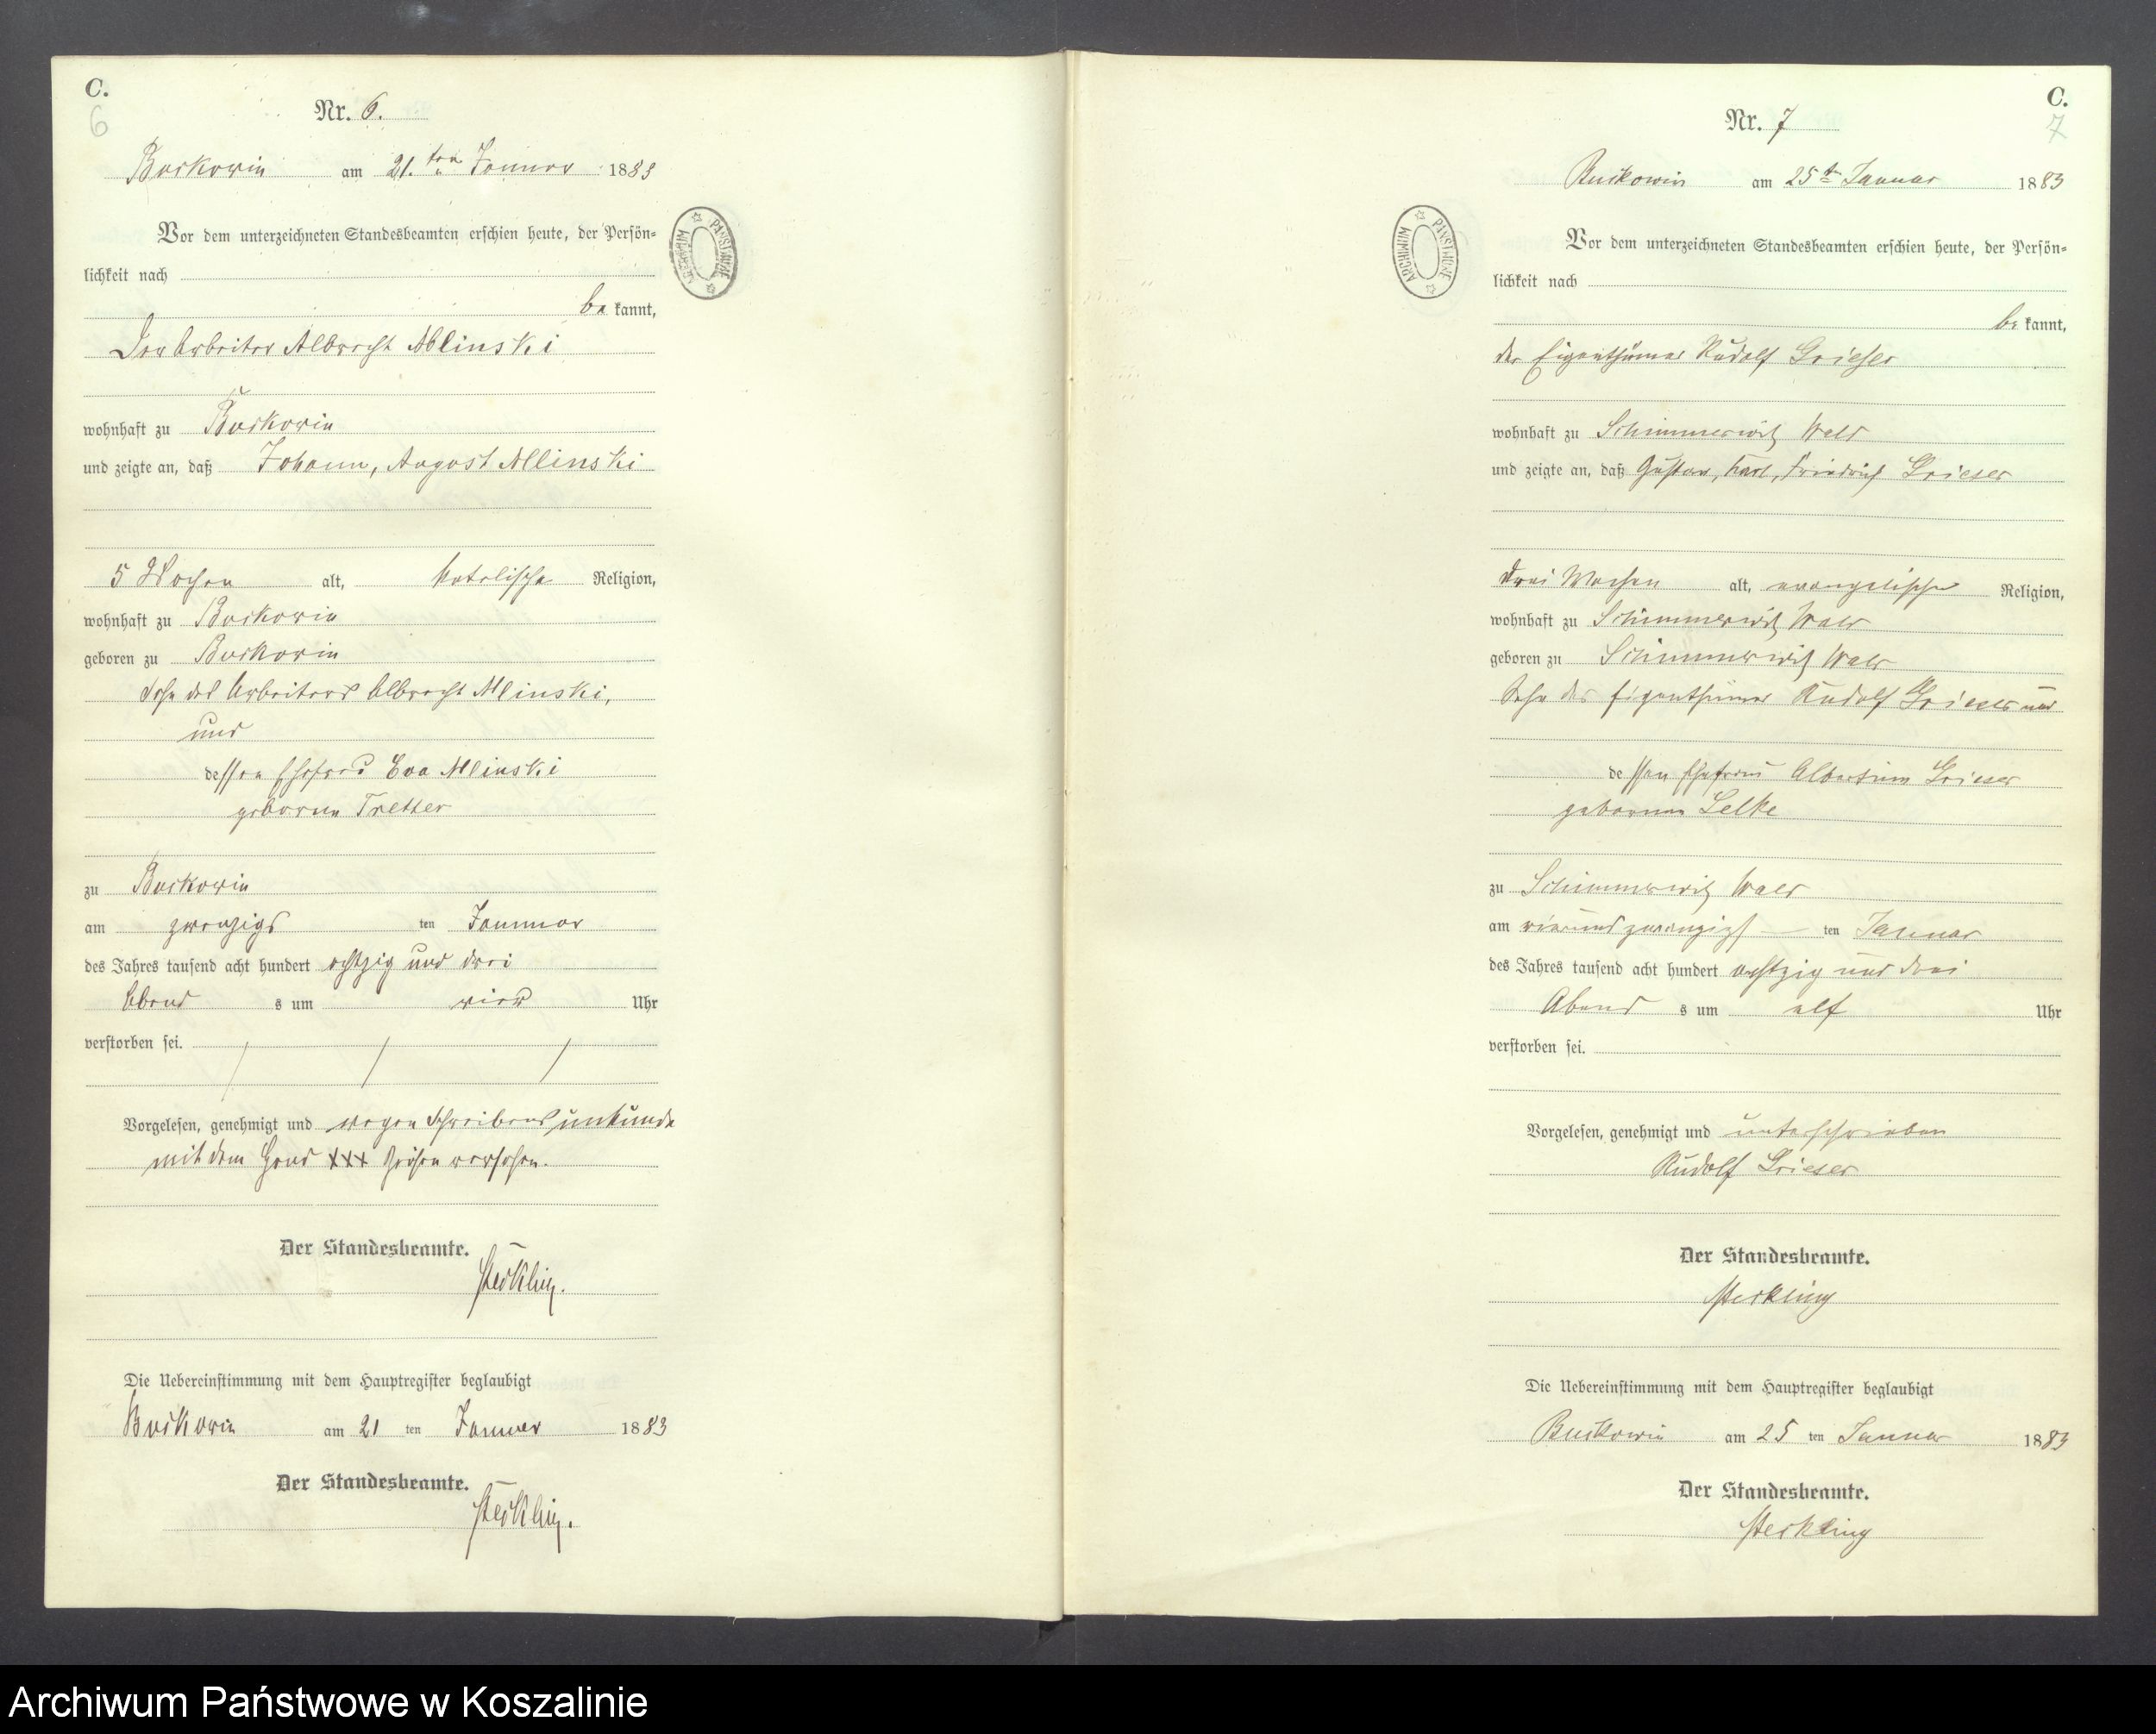 C.
6
Nr. 6.
Buckowin am 21. ten Januar 1883
Vor dem unterzeichneten Standesbeamten erschien heute, der Persön=
lichkeit nach
be kannt,
Der Arbeiter Albrecht Mlinski
wohnhaft zu Buckowin
und zeigte an, daß Johann, August Mlinski
5 Wochen alt, katolische Religion,
wohnhaft zu Buckowin
geboren zu Buckowin
Sohn des Arbeiters Albrecht Mlinski,
und
dessen Ehefrau Eva Mlinski
geborene Tretter
zu Buckowin
am zwanzigs ten Januar
des Jahres tausend acht hundert achtzig und drei
Abend s um vier Uhr
verstorben sei.
Vorgelesen, genehmigt und wegen Schreibens unkunde
mit dem Hand XXX Zeichen versehen.
Der Standesbeamte.
Die Uebereinstimmung mit dem Hauptregister beglaubigt
Buckowin am 21 ten Januar 1883
Der Standesbeamte.
PAŃSTWOWE ARCHIWUM
C.
7
Nr. 7
Buckowin am 25 ten Januar 1883
Vor dem unterzeichneten Standesbeamten erschien heute, der Persön=
lichkeit nach
be kannt,
der Eigenthümer Rudolf Grieser
wohnhaft zu Schimmerwitz Wald
und zeigte an, daß Gustav, Karl, Friedrich Grieser
drei Wochen alt, evangelischer Religion,
wohnhaft zu Schimmerwitz Wald
geboren zu Schimmerwitz Wald
Sohn des Eigenthümer Rudolf Grieser und
dessen Ehefrau Albertine Grieser
geborenen Selke
zu Schimmerwitz Wald
am vierundzwanzigst ten Januar
des Jahres tausend acht hundert achtzig und drei
Abend s um elf Uhr
verstorben sei.
Vorgelesen, genehmigt und unterschrieben
Rudolf Grieser
Der Standesbeamte.
Sterkling
Die Uebereinstimmung mit dem Hauptregister beglaubigt
Buckowin am 25 ten Januar 1883
Der Standesbeamte.
Sterkling
PAŃSTWOWE ARCHIWUM
Archiwum Państwowe w Koszalinie